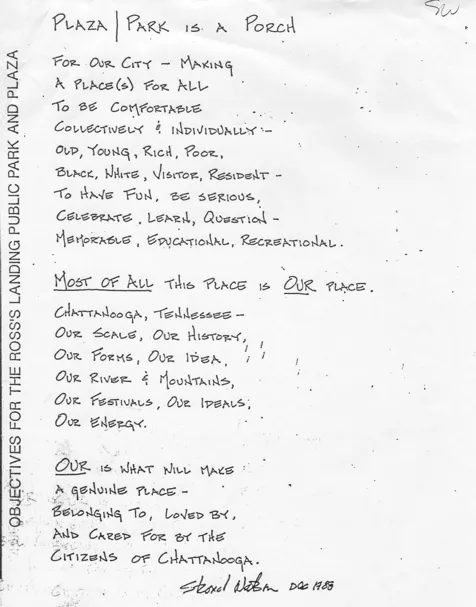 PLAZA | PARK IS A PORCH
FOR OUR CITY – MAKING
A PLACE(S) FOR ALL
TO BE COMFORTABLE
COLLECTIVELY & INDIVIDUALLY –
OLD, YOUNG, RICH, POOR,
BLACK, WHITE, VISITOR, RESIDENT –
TO HAVE FUN, BE SERIOUS,
CELEBRATE, LEARN, QUESTION –
MEMORABLE, EDUCATIONAL, RECREATIONAL.
MOST OF ALL THIS PLACE IS OUR PLACE.
CHATTANOOGA, TENNESSEE –
OUR SCALE, OUR HISTORY,
OUR FORMS, OUR IDEA,
OUR RIVER & MOUNTAINS,
OUR FESTIVALS, OUR IDEALS,
OUR ENERGY.
OUR IS WHAT WILL MAKE
A GENUINE PLACE –
BELONGING TO, LOVED BY,
AND CARED FOR BY THE
CITIZENS OF CHATTANOOGA.
DEC 1988
OBJECTIVES FOR THE ROSS'S LANDING PUBLIC PARK AND PLAZA